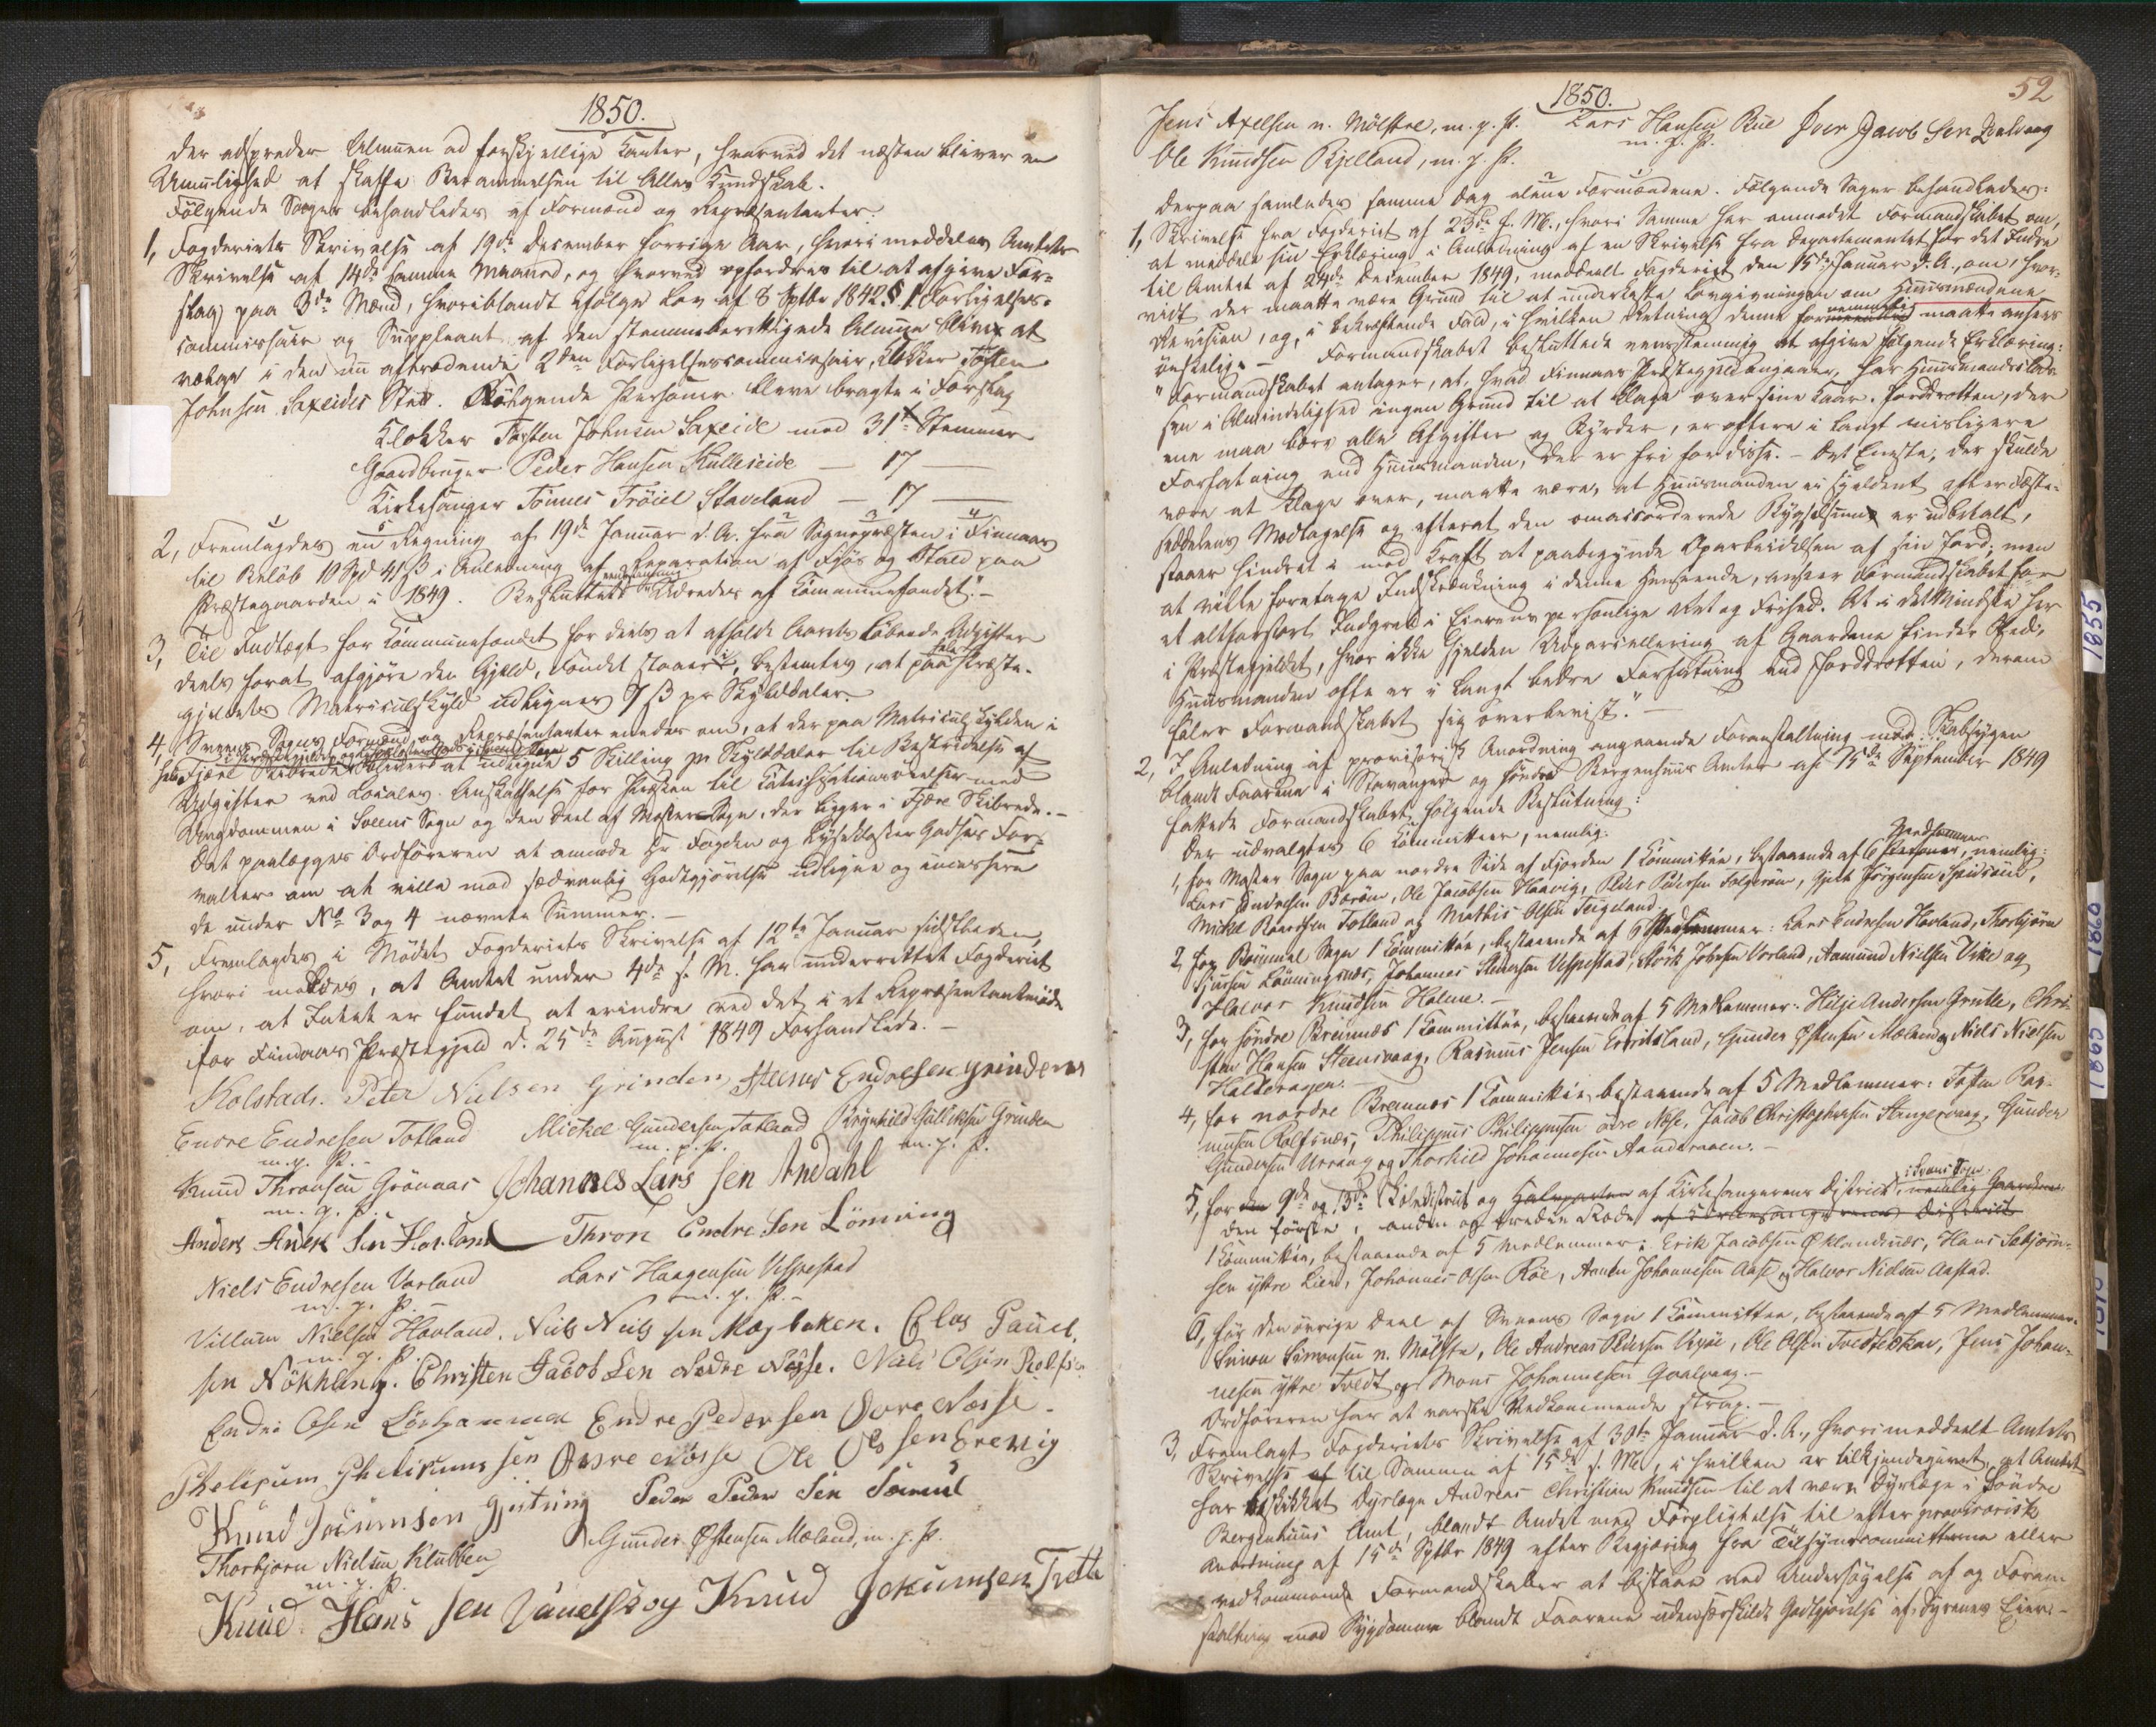 1850.
der adspreder Almuen ad forskjellige Kanter, hvorved det næsten bliver en
Umulighed at skaffe Berammelsen til Alles Kundskab.
Følgende Sager behandledes af Formænd og Repræsentanter:
1, Fogderiets Skrivelse af 19de December forrige Aar, hvori meddeles Amtets
Skrivelse af 14de samme Maaned, og hvorved opfordres til at afgive For-
slag paa 3de Mænd, hvoriblandt ifølge Lov af 8 Sptbr 1842 § 1 Forligelses-
commissair og Suppleant af den stemmeberettigede Almue bliver at
vælge i den nu aftrædende 2den Forligelsescommissair, Klokker Tosten
Johnsen Saxeides Sted. Følgende Personer bleve bragte i Forslag
Klokker Torsten Johnsen Saxeide med 31 Stemmer
Gaardbruger Peder Hansen Kulleseide — 17 —
Kirkesanger Tönnes Tröiel Staveland — 17 —
2, Fremlagdes en Regning af 19de Januar d. A. fra Sognepræsten i Finnaas
til Beløb 10 Spd 41 ß i Anledning af Reparation af Fjös og Stald paa
Præstegaarden i 1849. Besluttedes eenstemmig "Udredes af Communefondet."-
3, Til Indtægt for Kommunefondet for deels at afholde Aarets løbende Udgifter
deels forat afgjøre den Gjæld, Fondet staaer i, bestemtes, at paa hele Præste-
gjeldets Matriculskyld udlignes 7 ß pr Skylddaler.
4, Sveens Sogns Formænd og Repræsentanter enedes om, at der paa Matriculskylden i
Fjære Skibrede bliver at udligne 5 Skilling pr Skylddaler til Bestridelse af
Udgifter ved Locales Anskaffelse for Præsten til Catechisationsøvelser med
Ungdommen i Sveens Sogn og den Deel af Moster Sogn, der ligger i Fjære Skibrede.-
Det paalægges Ordføreren at anmode Hr Fogden og Lysekloster Godses For-
valter om at ville mod sædvanlig Godtgjørelse udligne og incassere
de under No 3 og 4 nævnte Summer.-
5, Fremlagdes i Mødet Fogderiets Skrivelse af 12te Januar sidstleden,
hvori meldes, at Amtet under 4de s. M. har underrettet Fogderiet
om, at Intet er fundet at erindre ved det i et Repræsentantmöde
for Finnaas Præstegjeld d. 25de August 1849 Forhandlede.-
Kolstad. Peter Nielsen Grinden Steener Endresen Grindem
Endre Endresen Totland Mickel Gundersen Totland Brynhild Gulliksen Grinden
m. p. P.- m. p. P. m. p. P.
Knud Thronsen Grönaas Johannes Lars sen Andahl
m. p. P.
Anders Anders sen Hovland Thron Endre Sen Lönning
Niels Endresen Vorland Lars Haagensen Vespestad
m. p. P.- m. p. P.-
Villum Nielsen Hovland. Niels Niels sen Mogbaken. Elas Pauel.
m. p. P.
sen Nökling. Christen Jacob Sen Nedre Næsse. Niels Olsen Rolfsn.
Endre Olsen Lörhammer Endre Pedersen Övre Næsse.
Phelipum Phelipums sen Övre Næsse Ole Ols sen Brevig
Knud Jocumsen Gjerstring Peder Peder Sen Sörinel
Thorbjørn Nielsen Klubben Gunder Östensen Mæland, m. p. P.
m. p. P.
Knud Hans sen Vanelsvog Knud Jokumsen Tvette
1850.
52
Jens Axelsen n. Mölstre, m. p. P. Lars Hansen Rue Iver Jacob Sen Qualvaag
m. p. P.
Ole Knudsen Bjelland, m. p. P.
Derpaa samledes samme Dag alene Formændene. Følgende Sager behandledes:
1, Skrivelse fra Fogderiet af 23de f. M., hvori Samme har anmodet Formandskabet om,
at meddele sin Erklæring i Anledning af en Skrivelse fra Departementet for det Indre
til Amtet af 24de December 1849, meddeelt Fogderiet den 15de Januar d. A., om, hvor-
vidt der maatte være Grund til at underkaste Lovgivningen om Huusmændene
Revision, og, i bekræftende Fald, i hvilken Retning denne maatte ansees
ønskelig.- Formandskabet besluttede eenstemmig at afgive følgende Erklæring:
"Formandskabet antager, at, hvad Finnaas Præstegjeld angaaer, har Huusmandsclas-
sen i Almindelighed ingen Grund til at klage over sine Kaar. Jorddrotten, der
ene maa bære alle Afgifter og Byrder, er oftere i langt misligere
Forfatning end Huusmanden, der er fri for disse.- Det Eneste, der skulde
være at klage over, maatte være, at Huusmanden ei sjeldent efter Fæste-
seddelens Modtagelse og efterat den omaccorderede Bygselsum er udbetalt,
staaer hindret i med Kraft at paabegynde Oparbeidelsen af sin Jord; men
at ville foretage Indskrænkning i denne Henseende, anseer Formandskabet for
et altforstort Indgreb i Eierens personlige Ret og Frihed. At i det Mindste her
i Præstegjeldet, hvor ikke sjelden Udparcellering af Gaardene finder Sted,
Huusmanden ofte er i langt bedre Forfatning end Jorddrotten, derom
føler Formandskabet sig overbeviist."-
2, I Anledning af provisorisk Anordning angaaende Foranstaltning mod Skabsygen
blandt Faarene i Stavanger og søndre Bergenhuus Amter af 15de September 1849
fattede Formandskabet følgende Beslutning:
Der udvalgtes 6 Committeer, nemlig:
1, for Moster Sogn paa nordre Side af Fjorden 1 Committee, bestaaende af 6 Medlemmer, nemlig:
Lars Endresen Börøen, Ole Jacobsen Haavig, Peder Pedersen Folgerøen, Gjert Jörgensen Speidsøen,
Mickel Knudsen Totland og Mathis Olsen Teigeland.
2, for Bömmel Sogn 1 Committee, bestaaende af 6 Medlemmer: Lars Endresen Hovland, Thorbjörn
Sjursen Lönningsnæs, Johannes Steensen Vespestad, Störk Johnsen Vorland, Aamund Nielsen Vike og
Halvor Knudsen Holme.-
3, for søndre Bremnæs 1 Committee, bestaaende af 5 Medlemmer: Hilje Andersen Grutle, Chri-
sten Hansen Steensvaag, Rasmus Jensen Eeritsland, Gunder Östensen Mæland og Niels Nielsen
Halleragen.-
4, for nordre Bremnæs 1 Committee bestaaende af 5 Medlemmer: Tosten Ras-
musen Rolfsnæs, Philippus Philippusen övre Næse, Jacob Christophersen Stangervaag, Gunder
Gundersen Urvang og Thorkild Johannesen Aandernaen.-
5, for den 9de og 13de Skoledistrict og Halvparten af Kirkesangerens District i Sveens Sogn, nemlig Gaardene
den første, anden og tredie Rode af Kirkesangerens District
1 Committee, bestaaende af 5 Medlemmer: Erik Jacobsen Öklandsnæs, Hans Sæbjörn-
sen ytre Lien, Johannes Olsen Röe, Aanen Johannesen Aase og Halvor Nielsen Aastad.
6, for den övrige Deel af Sveens Sogn 1 Committee, bestaaende af 5 Medlemmer:
Simon Simonsen n. Mölstre, Ole Andreas Pedersen Rysöe, Ole Olsen Tvedteskar, Jens Johan-
nesen ytre Tvedt og Mons Johannesen Qvalvaag.-
Ordføreren har at varsle Vedkommende strax.-
3, Fremlagt Fogderiets Skrivelse af 30te Januar d. A., hvori meddeelt Amtets
Skrivelse af til Samme af 15de s. M., i hvilken er tilkjendegivet, at Amtet
har beskikket Dyrlæge Andreas Christian Knudsen til at være Dyrlæge i Söndre
Bergenhuus Amt, blandt Andet med Forpligtelse til efter provisorisk
Anordning af 15de Sptbr 1849 efter Begjæring fra Tilsynscommitteerne eller
vedkommende Formandskaber at bistaae ved Undersøgelse af og Foran-
staltning mod Sygdomme blandt Faarene uden særskildt Godtgjørelse af Dyrenes Eier.-
1855
1860
1865
1870